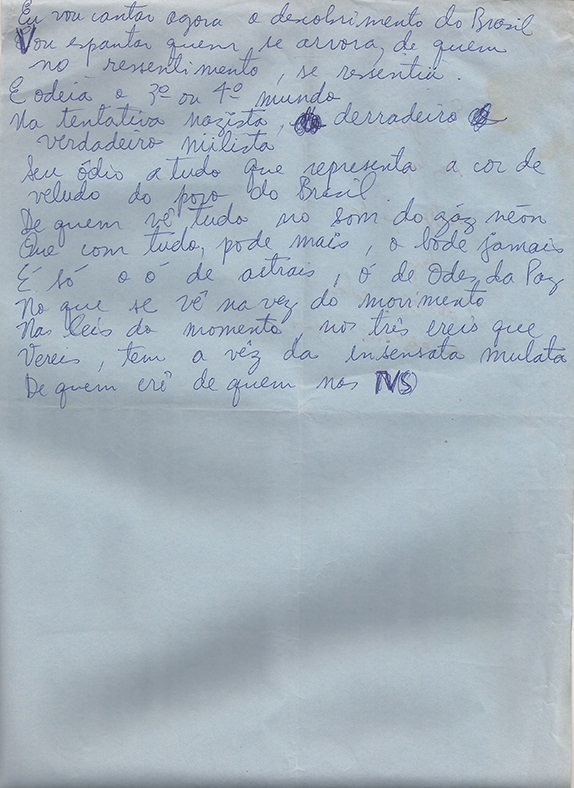 Eu vou cantar agora o descobrimento do Brasil
Vou espantar quem se arvora, de quem
no ressentimento, se ressentia.
E odeia o 3º ou 4º mundo
Na tentativa nazista, derradeiro
verdadeiro milista
Seu ódio a tudo que representa a cor de
veludo do povo do Brasil.
De quem vê tudo no som do gáz néon
Que com tudo, pode mais, o bode jamais
É só o ó de astrais, ó de Odes da Paz
No que se vê na vez do movimento
Nas leis do momento, nos três ereis que
Vereis, tem a véz da insensata mulata
De quem crê de quem nas TVS